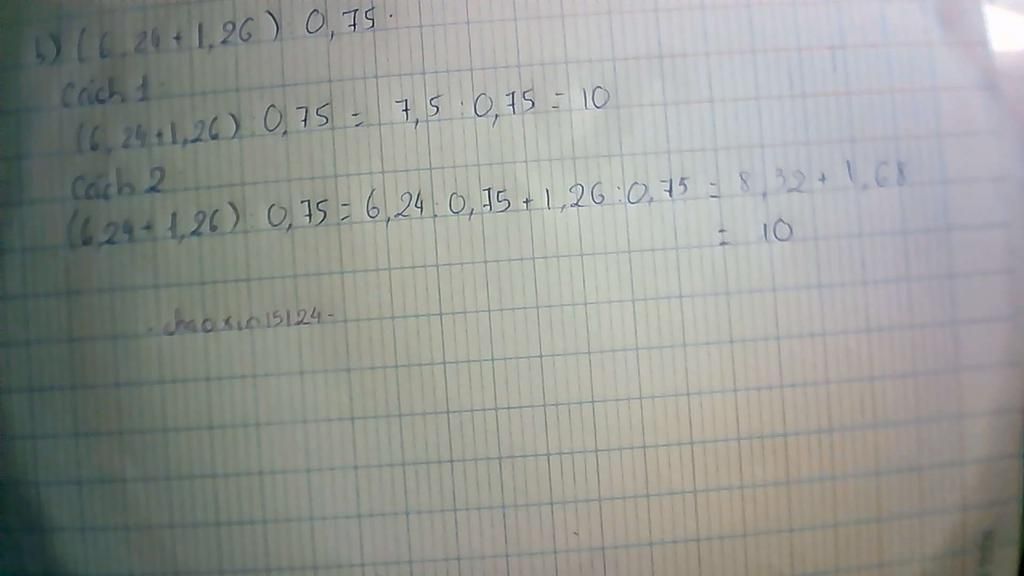 b) (6,24 + 1,26) : 0,75.
Cách 1
(6,24 + 1,26) : 0,75 = 7,5 : 0,75 = 10
Cách 2
(6,24 + 1,26) : 0,75 = 6,24 : 0,75 + 1,26 : 0,75 = 8,32 + 1,68
= 10
. chaoxin15124 -